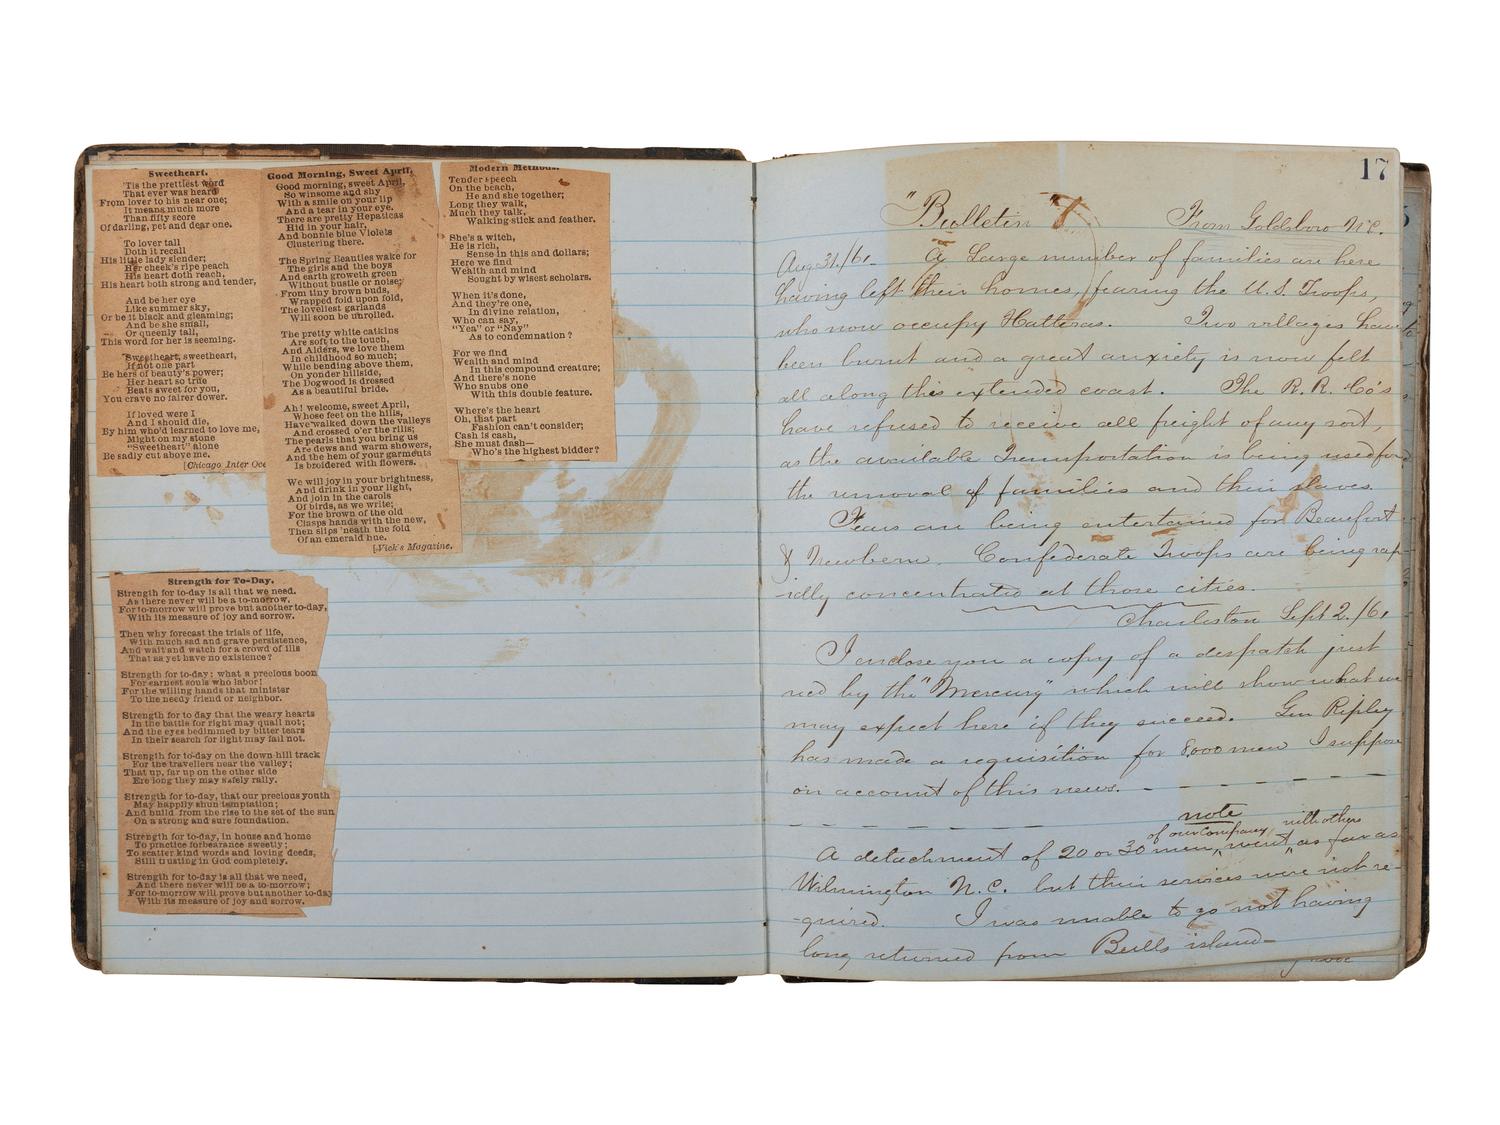 Sweetheart.
'Tis the prettiest word
That ever was heard
From lover to his near one;
It means much more
Than fifty score
Of darling, pet and dear one.
To lover tall
Doth it recall
His little lady slender;
Her cheek's ripe peach
His heart doth reach,
His heart both strong and tender,
And be her eye
Like summer sky,
Or be it black and gleaming;
And be she small,
Or queenly tall,
This word for her is seeming.
Sweetheart, sweetheart,
If not one part
Be hers of beauty's power;
Her heart so true
Beats sweet for you,
You crave no fairer dower.
If loved were I
And I should die,
By him who'd learned to love me,
Might on my stone
"Sweetheart" alone
Be sadly cut above me.
[Chicago Inter Oce
Good Morning, Sweet April.
Good morning, sweet April,
So winsome and shy
With a smile on your lip
And a tear in your eye.
There are pretty Hepaticas
Hid in your hair,
And bonnie blue Violets
Clustering there.
The Spring Beauties wake for
The girls and the boys
And earth groweth green
Without bustle or noise;
From tiny brown buds,
Wrapped fold upon fold,
The loveliest garlands
Will soon be unrolled.
The pretty white catkins
Are soft to the touch,
And Alders, we love them
In childhood so much;
While bending above them,
On yonder hillside,
The Dogwood is dressed
As a beautiful bride.
Ah! welcome, sweet April,
Whose feet on the hills,
Have walked down the valleys
And crossed o'er the rills;
The pearls that you bring us
Are dews and warm showers,
And the hem of your garments
Is broidered with flowers.
We will joy in your brightness,
And drink in your light,
And join in the carols
Of birds, as we write;
For the brown of the old
Clasps hands with the new,
Then slips 'neath the fold
Of an emerald hue.
[Vick's Magazine.
Modern Methods.
Tender speech
On the beach,
He and she together;
Long they walk,
Much they talk,
Walking-stick and feather.
She's a witch,
He is rich,
Sense in this and dollars;
Here we find
Wealth and mind
Sought by wisest scholars.
When it's done,
And they're one,
In divine relation,
Who can say,
"Yea" or "Nay"
As to condemnation?
For we find
Wealth and mind
In this compound creature;
And there's none
Who snubs one
With this double feature.
Where's the heart
Oh, that part
Fashion can't consider;
Cash is cash,
She must dash—
Who's the highest bidder?
Strength for To-Day.
Strength for to-day is all that we need.
As there never will be a to-morrow.
For to-morrow will prove but another to-day,
With its measure of joy and sorrow.
Then why forecast the trials of life,
With much sad and grave persistence,
And wait and watch for a crowd of ills
That as yet have no existence?
Strength for to-day; what a precious boon
For earnest souls who labor!
For the willing hands that minister
To the needy friend or neighbor.
Strength for to day that the weary hearts
In the battle for right may quail not;
And the eyes bedimmed by bitter tears
In their search for light may fail not.
Strength for to-day on the down-hill track
For the travellers near the valley;
That up, far up on the other side
Ere long they may safely rally.
Strength for to-day, that our precious youth
May happily shun temptation;
And build from the rise to the set of the sun
On a strong and sure foundation.
Strength for to-day, in house and home
To practice forbearance sweetly;
To scatter kind words and loving deeds,
Still trusting in God completely.
Strength for to-day is all that we need,
And there never will be a to-morrow;
For to-morrow will prove but another to-day
With its measure of joy and sorrow.
17
"Bulletin" From Goldsboro N.C.
Aug 31./61 - A Large number of families are here
having left their homes, fearing the U.S. Troops,
who now occupy Hatteras. Two villages have
been burnt and a great anxiety is now felt
all along this extended coast. The R.R. Co's
have refused to receive all freight of any sort,
as the available Transportation is being used for
the removal of families and their slaves.
Fears are being entertained for Beaufort
& Newberne. Confederate Troops are being rap-
-idly concentrated at those cities.
Charleston Sept 2./61
I enclose you a copy of a despatch just
rec'd by the "Mercury" which will show what we
may expect here if they succeed. Gen Ripley
has made a requisition for 8,000 men I suppose
on account of this news.
note
of our Company with others
A detachment of 20 or 30 men, went, as far as
Wilmington N.C. but their services were not re-
-quired. I was unable to go not having
long returned from Bulls island-